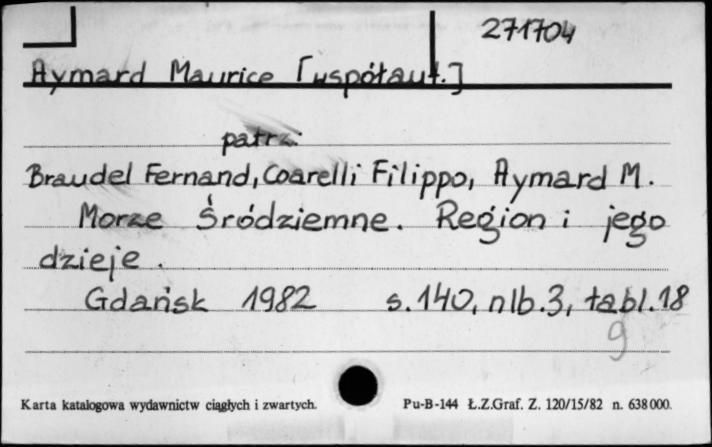 271704
Aymard Maurice [współaut.]
patrz:
Braudel Fernand, Coarelli Filippo, Aymard M.
Morze Śródziemne. Region i jego
dzieje.
Gdańsk 1982 s. 140, nlb. 3, tabl. 18
9
Karta katalogowa wydawnictw ciągłych i zwartych. Pu-B-144 Ł.Z.Graf. Z. 120/15/82 n. 638 000.